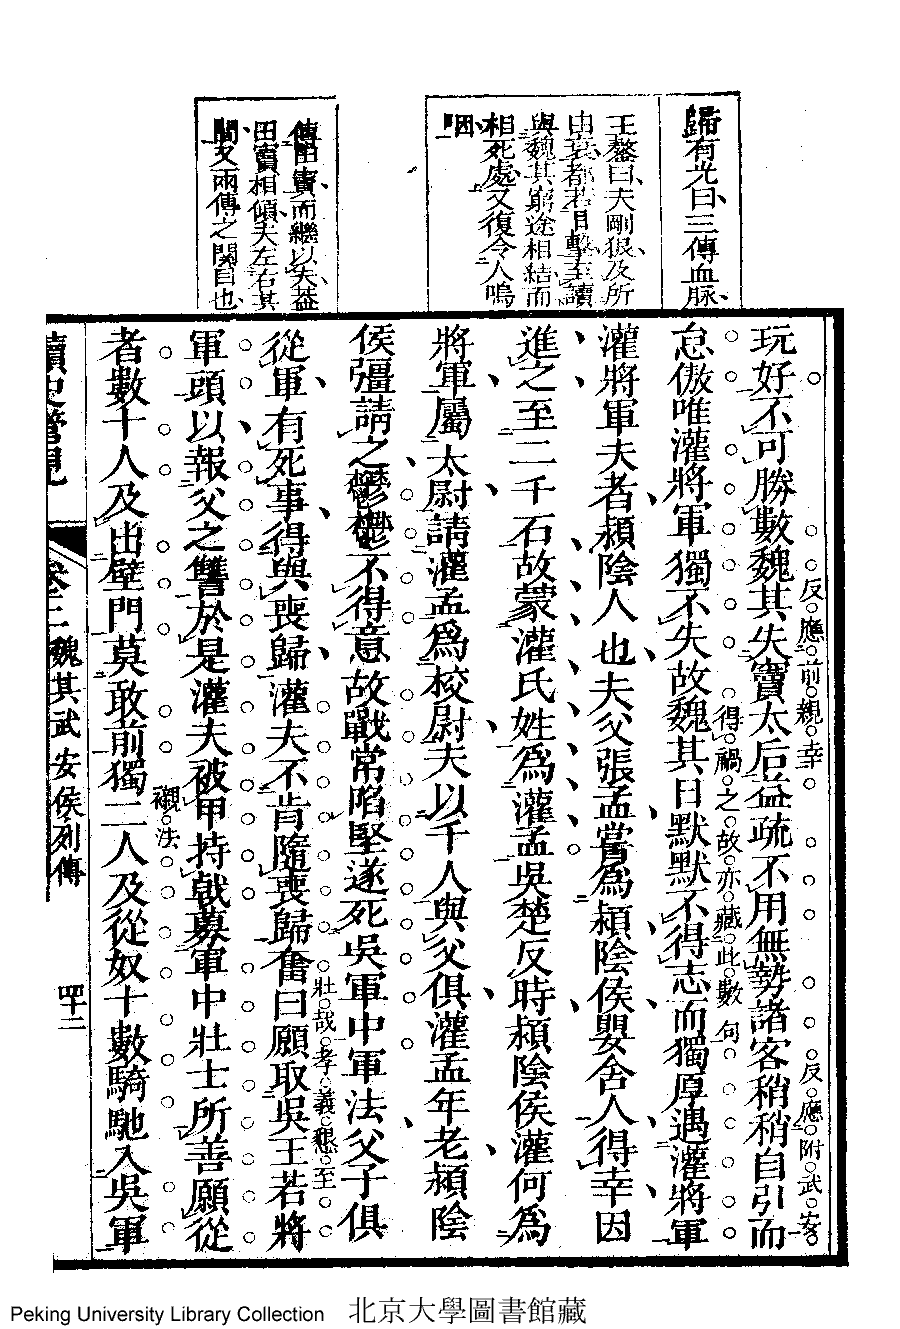 歸有光曰三傳血脉
王鏊曰夫剛狠及所
由衰都若目擊至讀
與魏其窮途相結而
相死處又復令人嗚
咽
傳田竇而繼以夫葢
田竇相傾夫左右其
間又兩傳之関目也
玩好不可勝數魏其失竇太后益疏不用無勢諸客稍稍自引而
反應前親幸
反應附武安
怠傲唯灌將軍獨不失故魏其日默默不得志而獨厚遇灌將軍
得禍之故亦藏此數句
灌將軍夫者潁陰人也夫父張孟嘗爲潁陰侯嬰舍人得幸因
進之至二千石故蒙灌氏姓爲灌孟吳楚反時潁陰侯灌何爲
將軍屬太尉請灌孟爲校尉夫以千人與父俱灌孟年老潁陰
侯彊請之鬱鬱不得意故戰常陷堅遂死吳軍中軍法父子俱
從軍有死事得與喪歸灌夫不肯隨喪歸奮曰願取吳王若將
壯哉孝義懇至
軍頭以報父之讐於是灌夫被甲持戟募軍中壯士所善願從
者數十人及出壁門莫敢前獨二人及從奴十數騎馳入吳軍
襯法
讀史管見
卷三 魏其武安侯列傳
四十二
Peking University Library Collection 北京大學圖書館藏